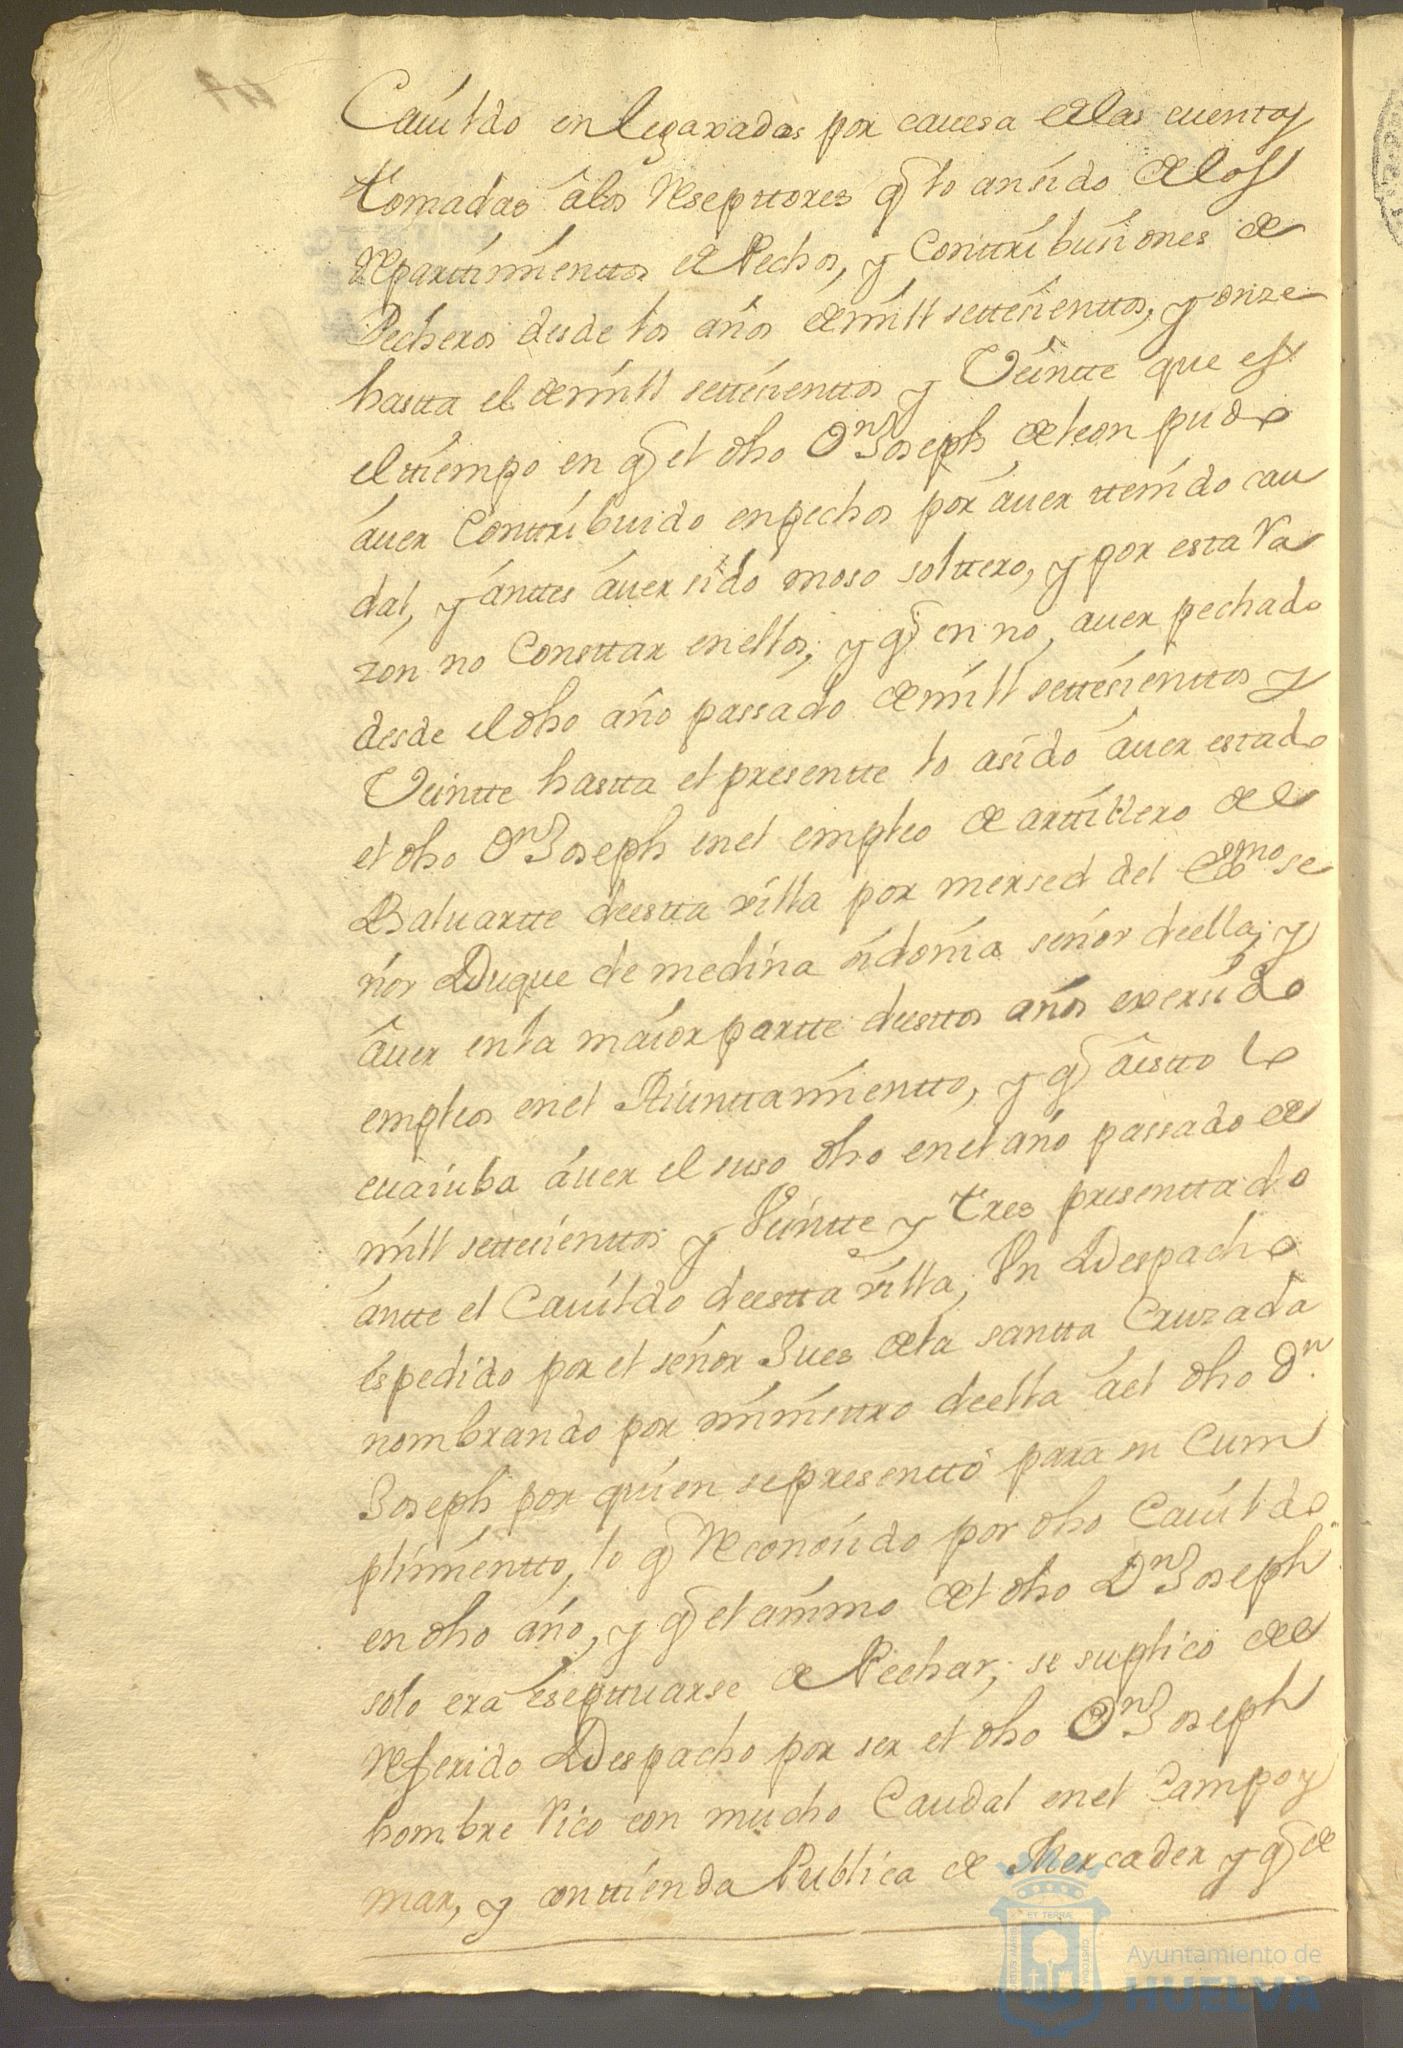 Cauildo en legaxadas por cauesa de las cuentas
tomadas â los Reseptores q̃ lo an sido de los
Repartimienttos de Pechos, y Conttribusiones de
Pecheros desde los años de mill settesienttos, y onze
hastta el de mill settesienttos y Veintte que es
el ttiempo en q̃ el dho Dn Joseph de leon pudo
áuer Conttribuido en pechos por áuer ttenido cau
dal, y ánttes áuer sido moso solttero, y por esta Ra
zon no Consttar en ellos; y q̃ en no auer pechado
desde el dho año passado de mill settesienttos y
Veintte hastta el presentte lo a sido áuer estado
el dho Dn Joseph en el empleo de arttillero de el
Baluartte de estta villa por mersed del Exmo se
ñor Duque de medina sidonia señor de ella; y
âuer en la maior partte de esttos años exersido
empleos en el Aiunttamientto, y q̃ â estto le
euaiuba áuer el suso dho en el año passado de
mill settesienttos y Veintte y tres presenttado
ántte el Cauildo de estta villa, Vn Despacho
espedido por el señor Jues de la santta Cruzada
nombrando por ministtro de ella áel dho Dn
Joseph por quien se presenttó para su Cum
plimientto, lo q̃ Reconosido por dho Cauildo
en dho año, y q̃ el animo del dho Dn Joseph
solo era eseptuarse de Pechar; se suplico de el
Referido Despacho por ser el dho Dn Joseph
hombre Rico con mucho Caudal en el Campo y
mar, y con ttienda Publica de Mercader y q̃ de
Ayuntamiento de
HUELVA